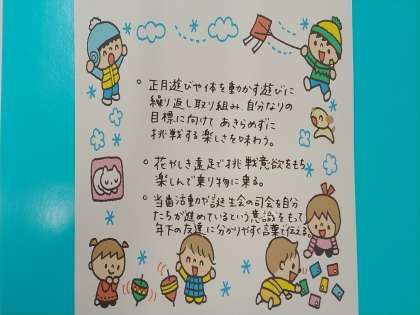 ○ 正月遊びや体を動かす遊びに
繰り返し取り組み、自分なりの
目標に向けてあきらめずに
挑戦する楽しさを味わう。
○ 花やしき遠足で挑戦意欲をもち
楽しんで乗り物に乗る。
○ 当番活動や誕生会の司会を自分
たちが進めているという意識をもって
年下の友達に分かりやすく言葉で伝える。